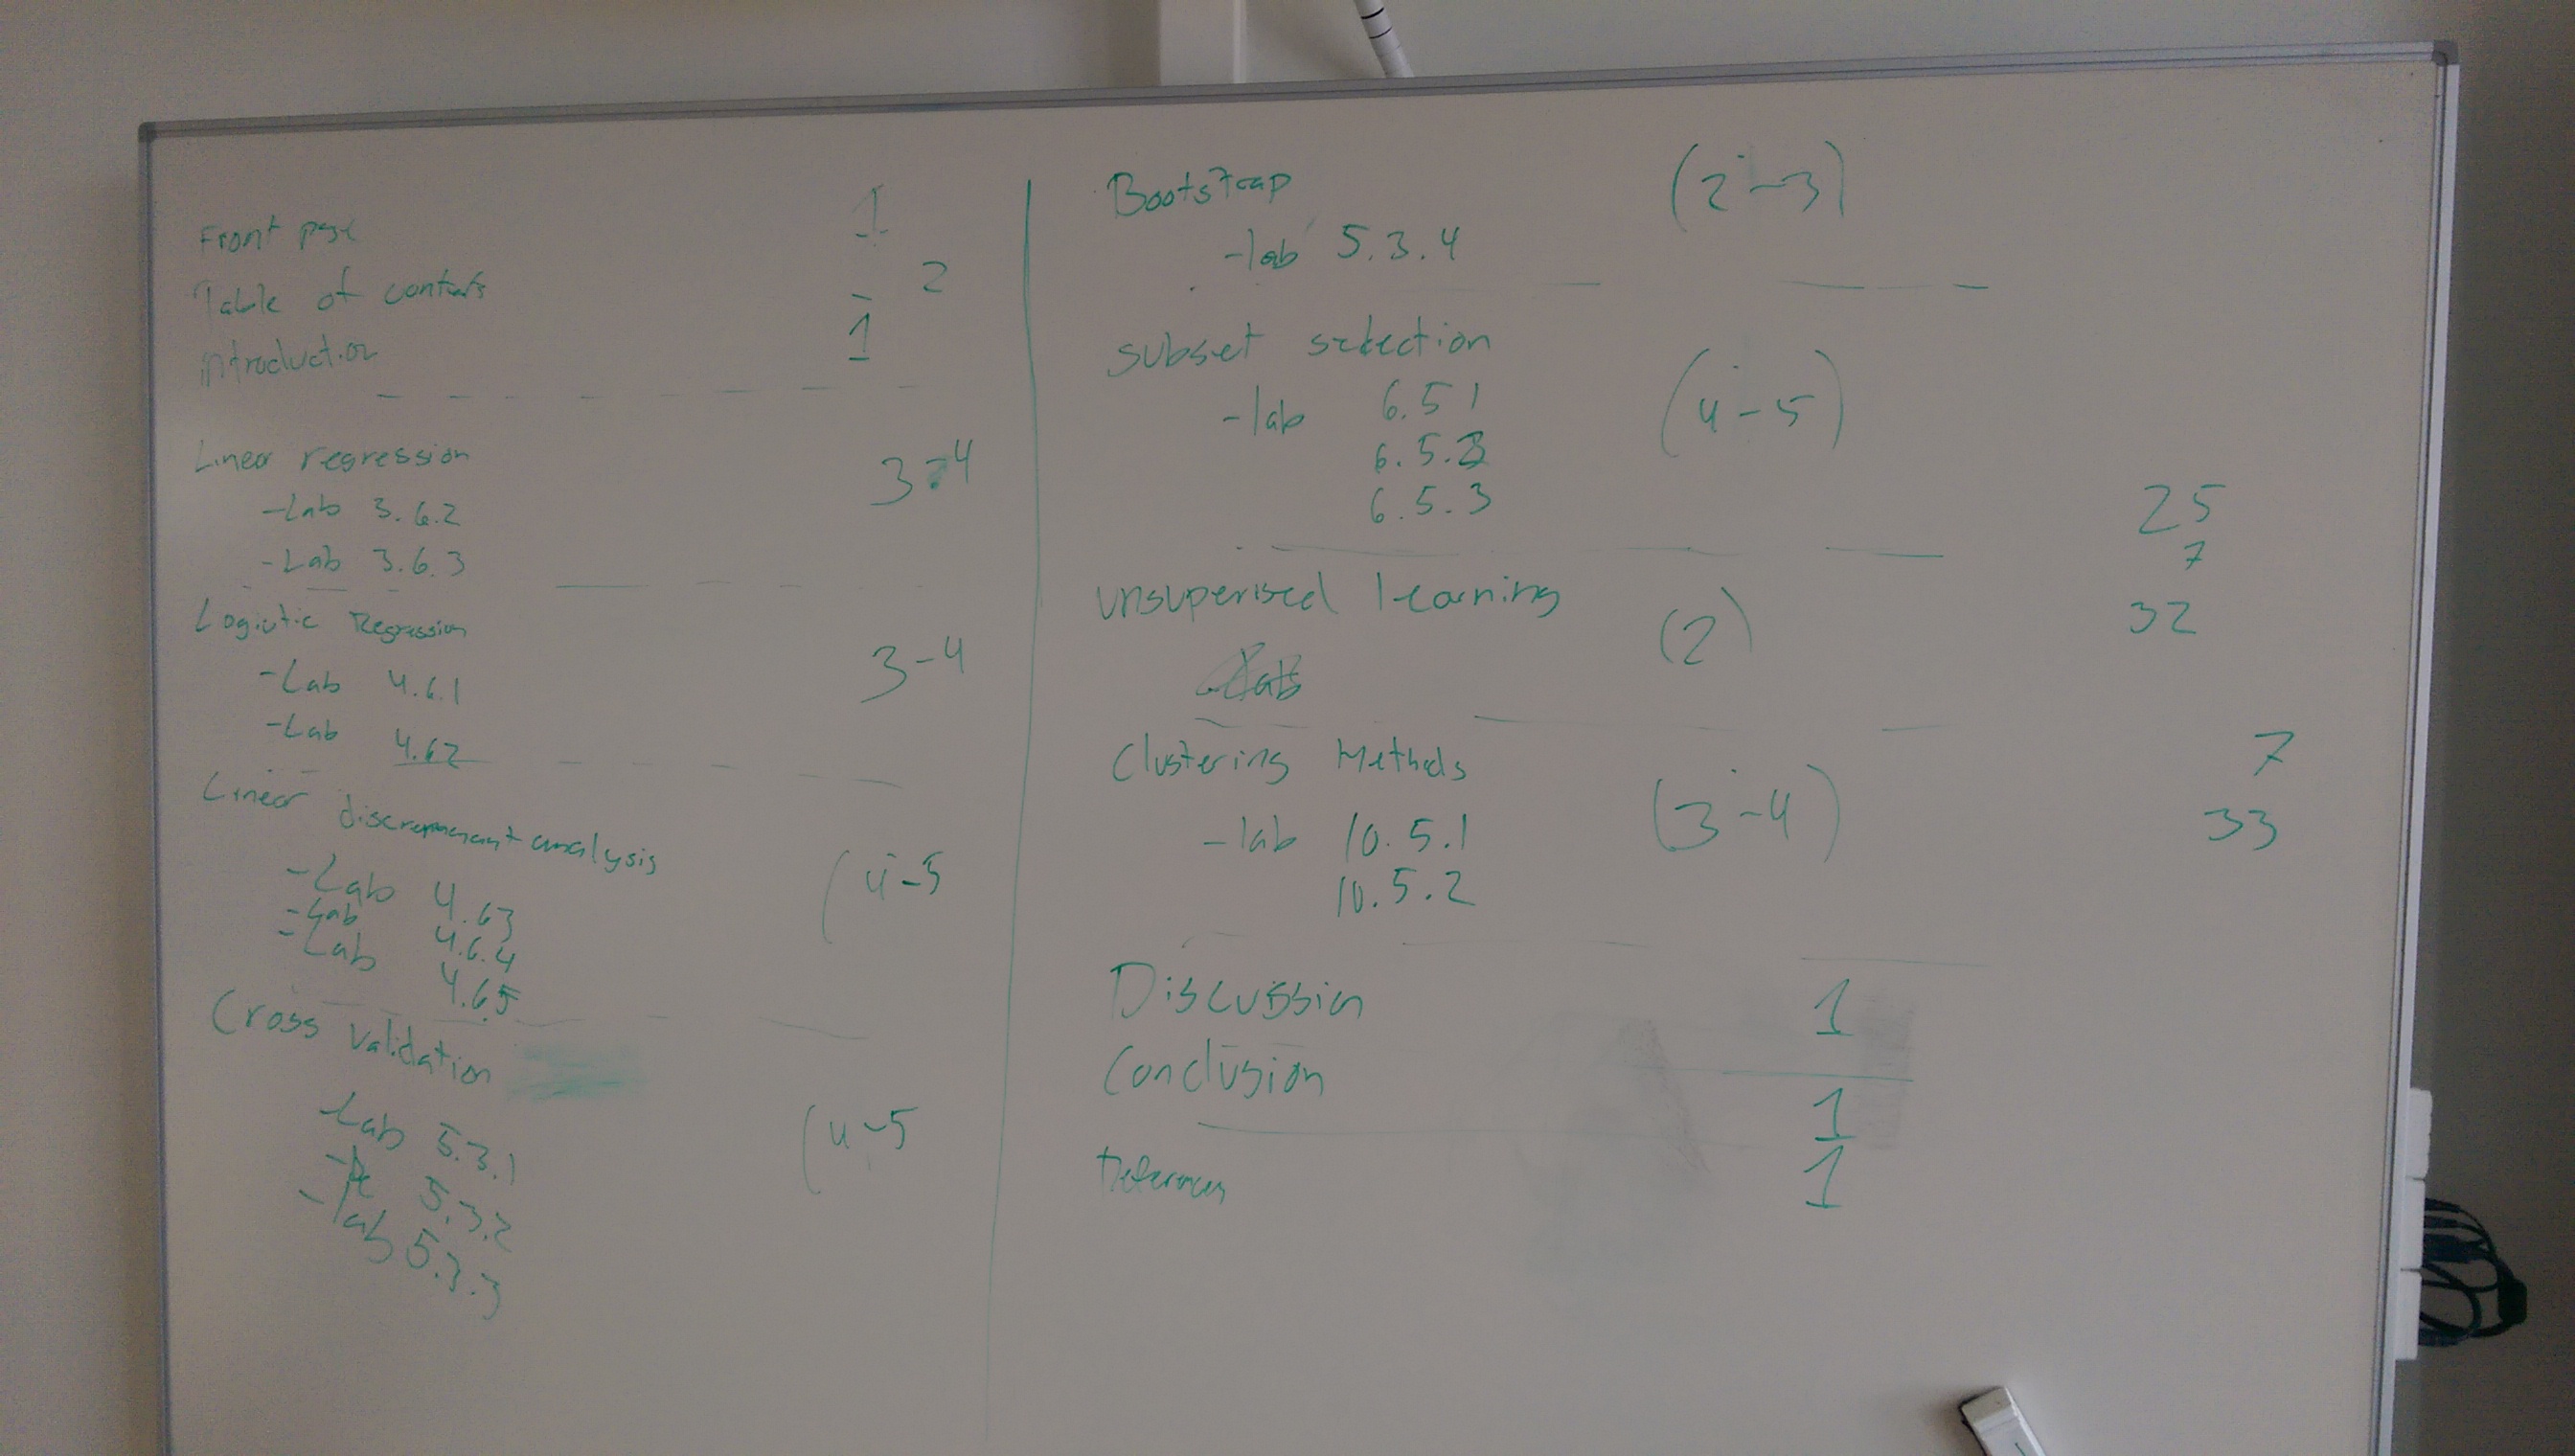 Front page 1
Table of contents 2
introduction 1
Linear regression 3-4
-Lab 3.6.2
-Lab 3.6.3
Logistic Regression 3-4
-Lab 4.6.1
-Lab 4.62
Linear analysis (4-5
-Lab 4.63
-Lab 4.6.4
-Lab 4.65
Cross validation
-Lab 5.3.1 (4-5
5.3.2
-lab 5.3.3
Bootstrap (2-3)
-lab 5.3.4
subset selection
-lab 6.51 (4-5)
6.5.
6.5.3
unsuperised learning (2)
Clustering Methods
-lab 10.5.1 (3-4)
10.5.2
Discussion 1
Conclusion 1
1
25
7
32
7
33